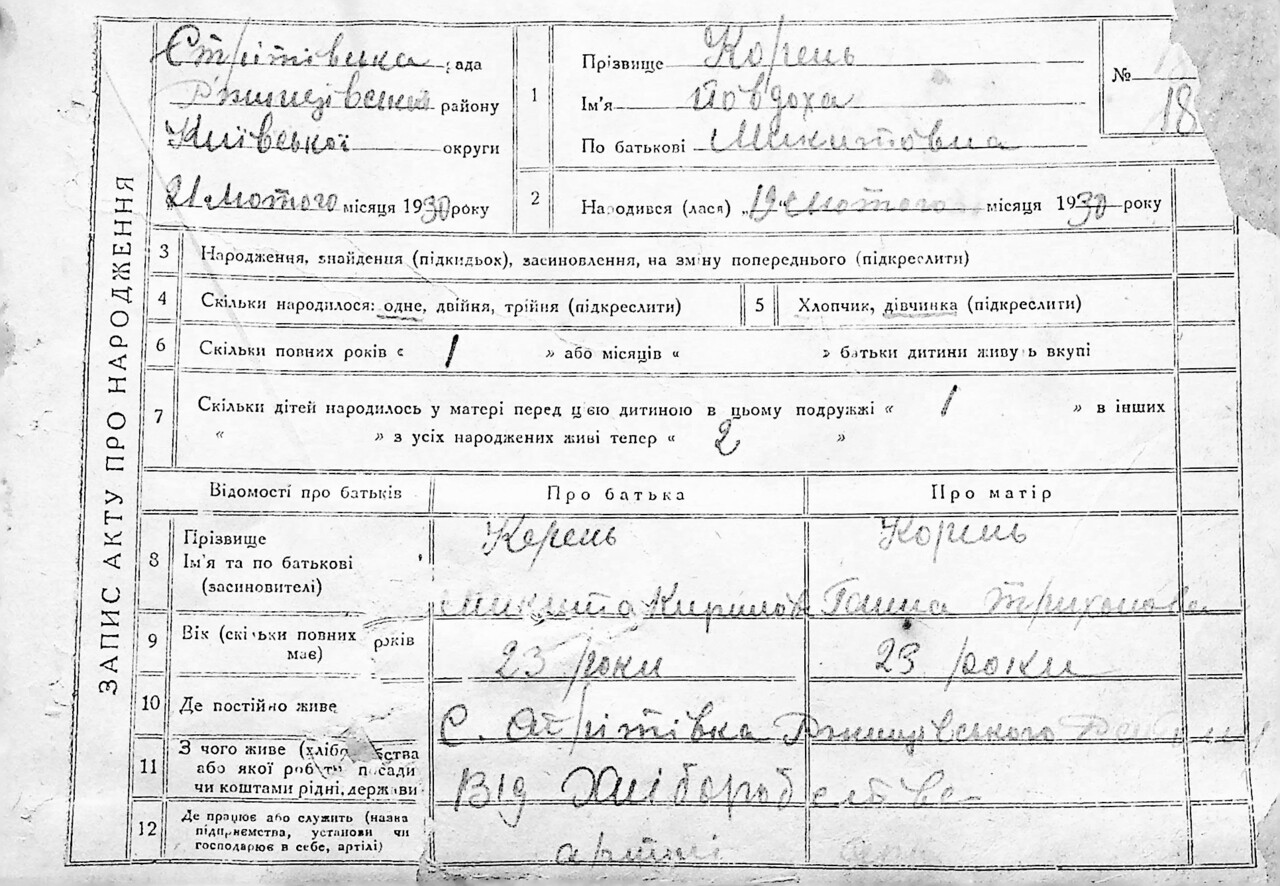 ЗАПИС АКТУ ПРО НАРОДЖЕННЯ
Стрітівська рада
Ржищівський району
Київської округи
21 лютого місяця 1930 року
1
Прізвище Корень
Ім'я Повдоха
По батькові Микитовна
№
18
2
Народився (лася) „19" лютого місяця 1930 року
3
Народження, знайдення (підкидьох), засиновлення, на зміну попереднього (підкреслити)
4
Скільки народилося: одне, двійня, трійня (підкреслити)
5
Хлопчик, дівчинка (підкреслити)
6
Скільки повних років « 1 » або місяців « » батьки дитини живуть вкупі
7
Скільки дітей народилось у матері перед цією дитиною в цьому подружжі « 1 » в інших
« » з усіх народжених живі тепер « 2 »
Відомості про батьків
Про батька
Про матір
8
Прізвище
Ім'я та по батькові
(засиновителі)
Корень
Микита Кирилов
Корень
Ганна Трихонова
9
Вік (скільки повних років
має)
23 роки
23 роки
10
Де постійно живе
С. Стрітівка Ржищівського
11
З чого живе (хліборобства
або якої роботи посади
чи коштами рідні, держави
Від Хліборобства
12
Де працює або служить (назва
підприємства, установи чи
господарює в себе, артілі)
артілі